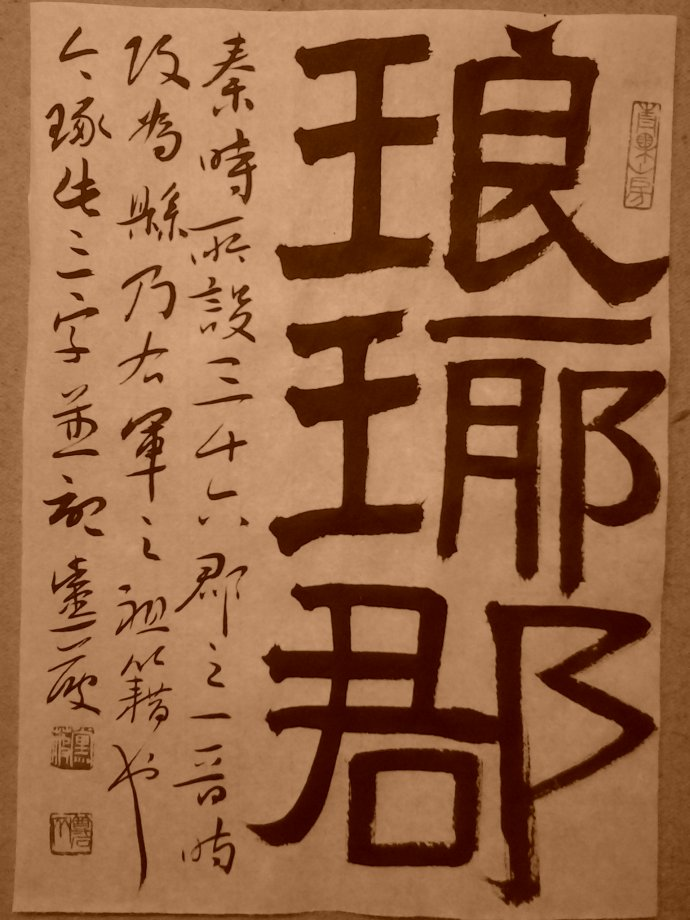 琅琊郡
秦時所設三十六郡之一晉時
改為縣乃右軍之祖籍也
今琢此三字並記